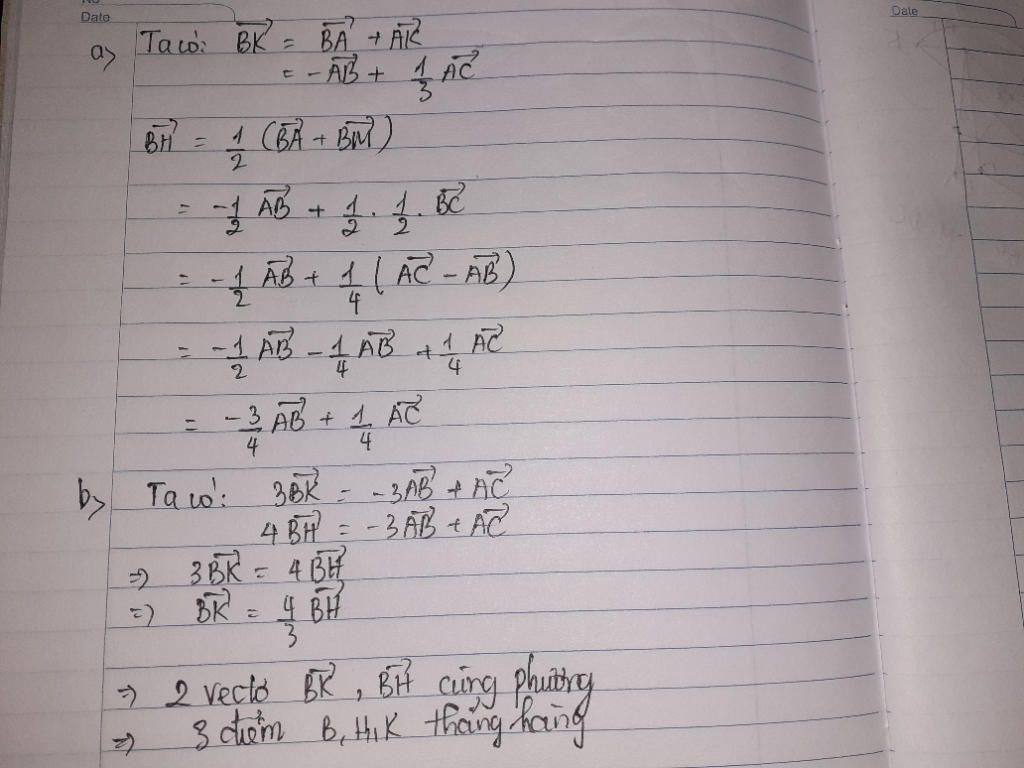 No
Date
Date
a) Ta có: BK→ = BA→ + AK→
= -AB→ + 1/3 AC→
BH→ = 1/2 (BA→ + BM→)
= -1/2 AB→ + 1/2 . 1/2 . BC→
= -1/2 AB→ + 1/4 (AC→ - AB→)
= -1/2 AB→ - 1/4 AB→ + 1/4 AC→
= -3/4 AB→ + 1/4 AC→
b) Ta có: 3BK→ = -3AB→ + AC→
4BH→ = -3AB→ + AC→
=> 3BK→ = 4BH→
=> BK→ = 4/3 BH→
=> 2 vectơ BK→, BH→ cùng phương
=> 3 điểm B, H, K thẳng hàng